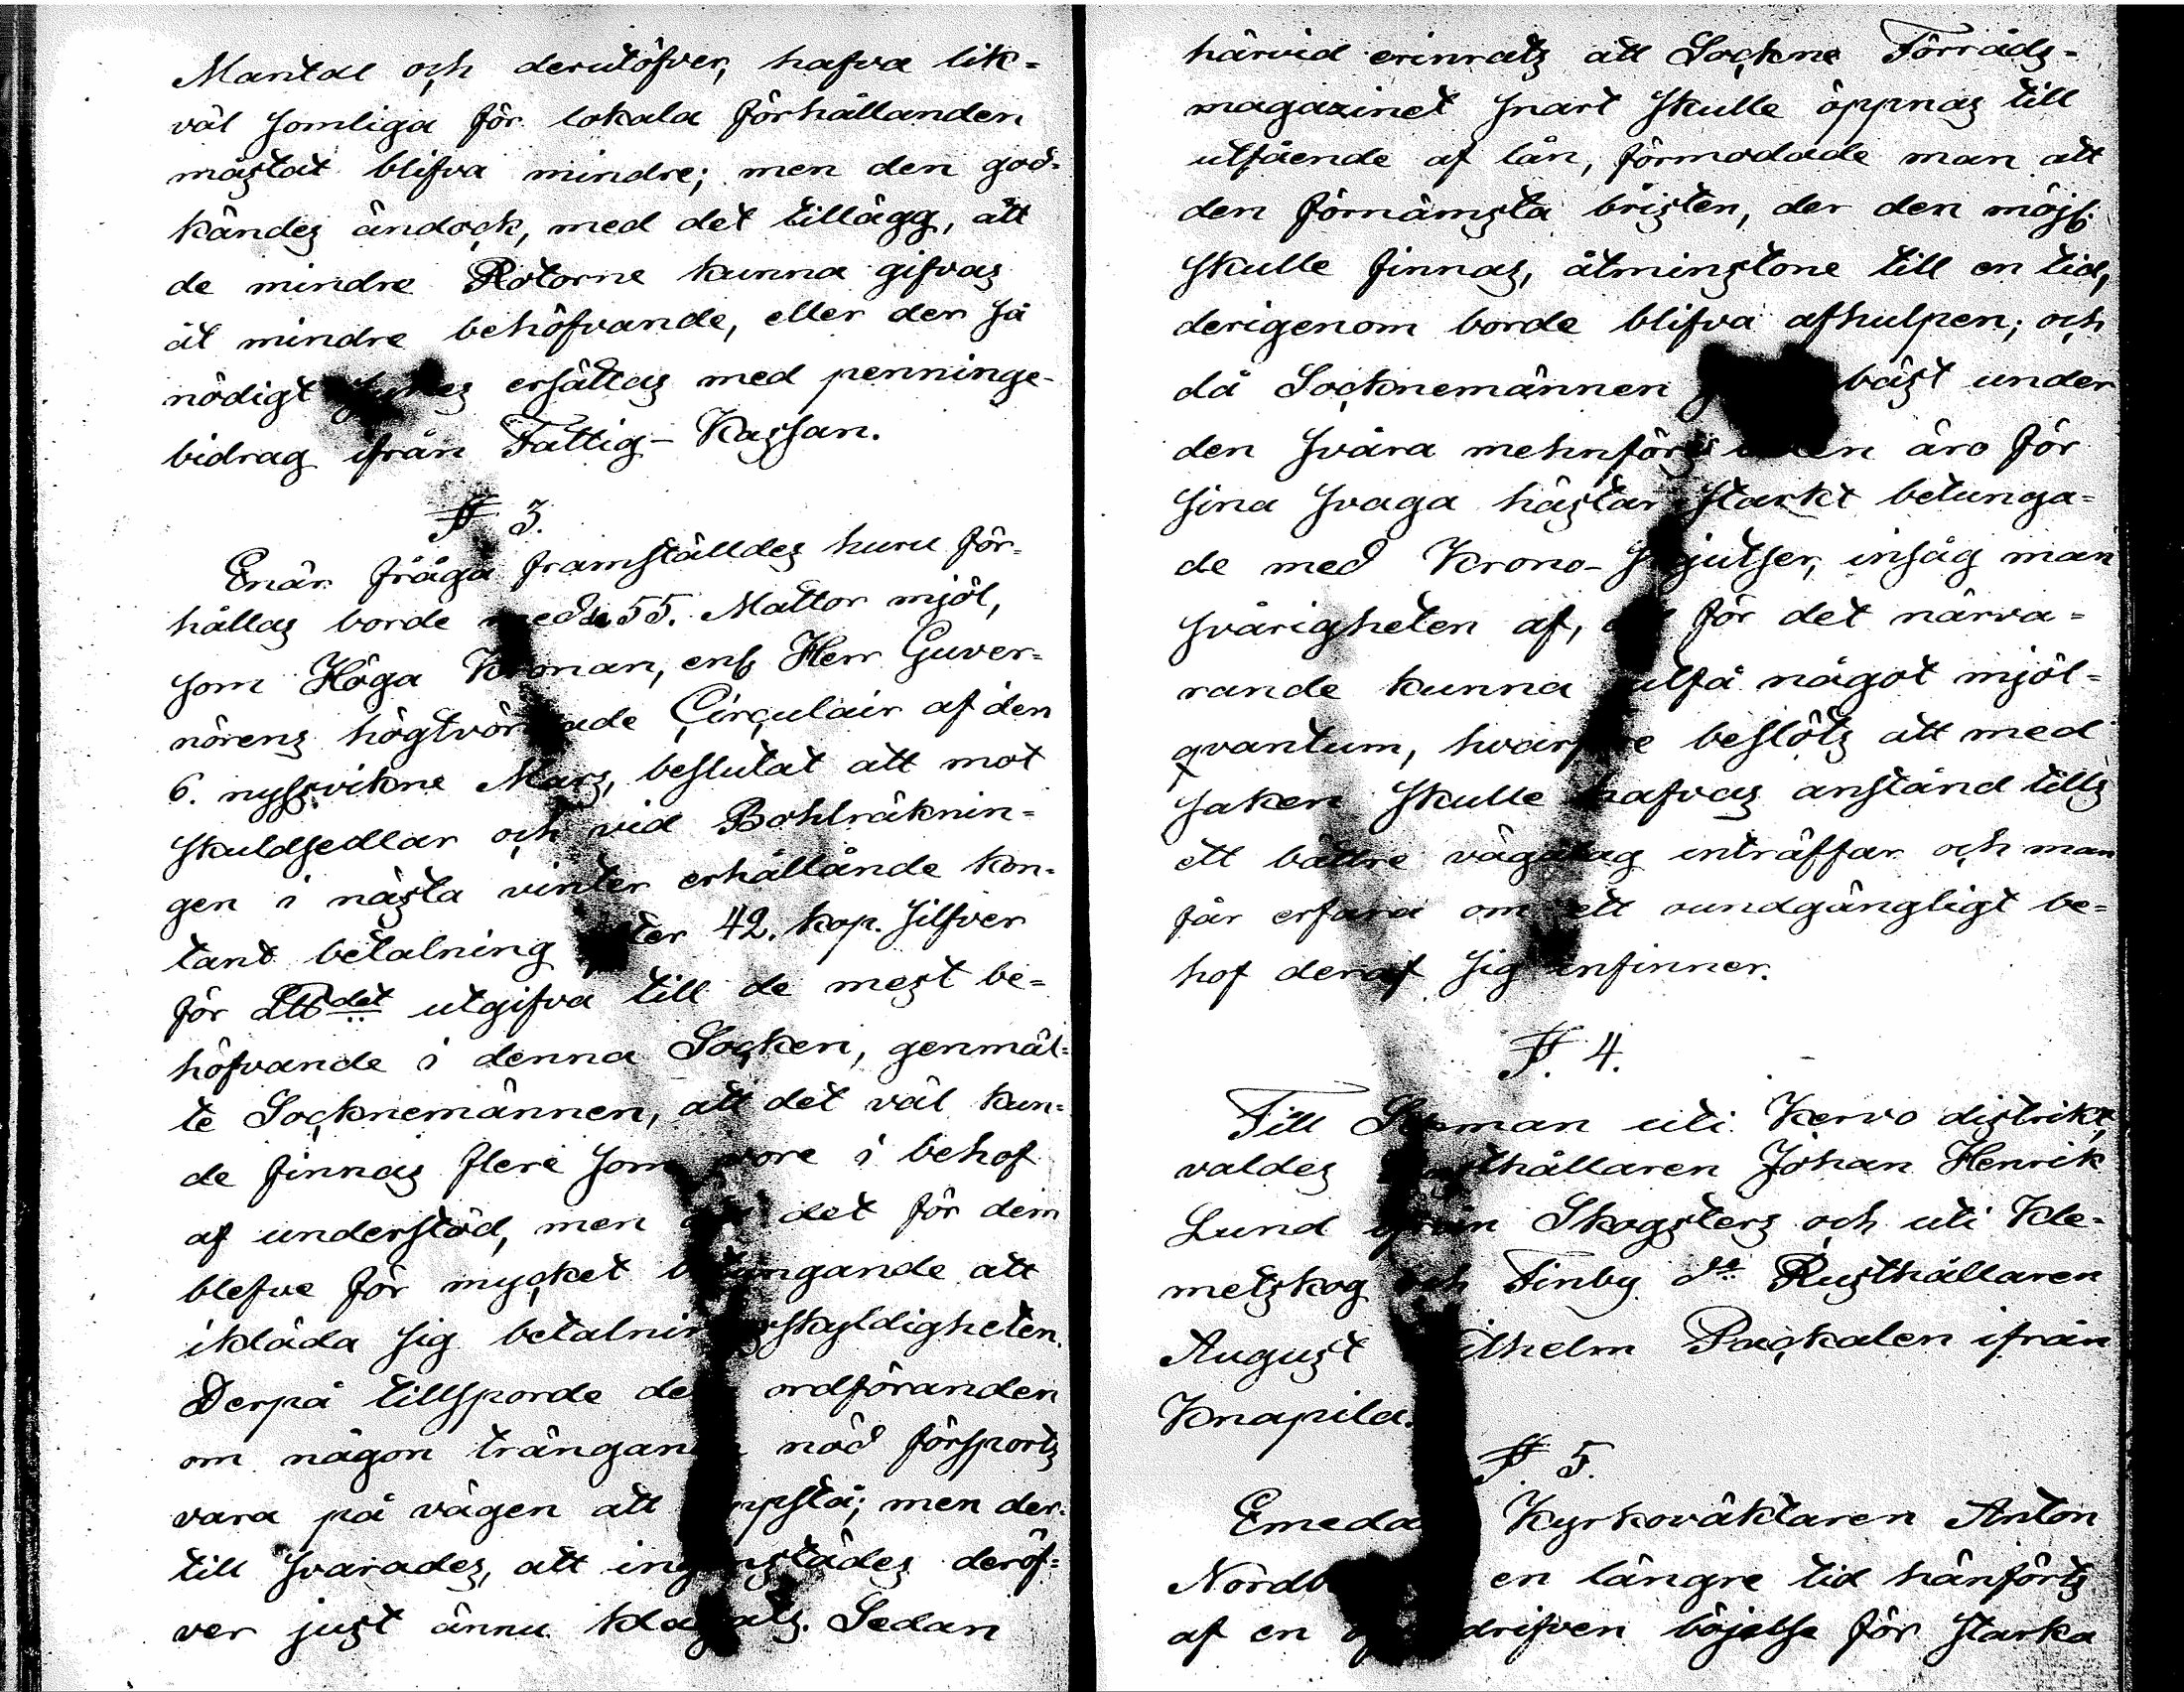 Mantal och derutöfver, hafva lik-
väl somliga för lokala förhållanden
måstat blifva mindre; men den god-
kändes ändock, med det tillägg, att
de mindre Rotorne kunna gifvas
åt mindre behöfvande, eller der så
nödigt synes ersättas med penninge-
bidrag ifrån Fattig-Kassan.
§ 3.
Enär fråga framställdes huru för-
hållas borde med 55. Mattor mjöl,
som Höga Kronan, enl. Herr Guver-
nörens högtvördade Circulair af den
6. nyssvikne Mars, beslutat att mot
skuldsedlar och vid Bohlräknin-
gen i nästa vinter erhållande kon-
tant betalning efter 42. kop. silfver
för Ltt det utgifva till de mest be-
höfvande i denna Socken, genmäl-
te Socknemännen, att det väl kun-
de finnas flere som vore i behof
af understöd, men att det för dem
blefve för mycket betungande att
ikläda sig betalningsskyldigheten.
Derpå tillsporde dem ordföranden
om någon trängande nöd försports
vara på vägen att uppstå; men der-
till svarades, att ingenstädes deröf-
ver just ännu klagats. Sedan
härvid erinrats att Sockne Förråds-
magazinet snart skulle öppnas till
utfående af lån, förmodade man att
den förnämsta bristen, der den möjl.
skulle finnas, åtminstone till en tid,
derigenom borde blifva afhulpen; och
då Socknemännen bäst under
den svåra mehnföres tiden äro för
sina svaga hästar starkt betunga-
de med Krono-skjutser, insåg man
svårigheten af, att för det närva-
rande kunna utfå något mjöl-
qvantum, hvarföre beslöts att med
saken skulle hafvas anstånd tills
ett bättre väglag inträffar och man
får erfara om ett oundgängligt be-
hof deraf sig infinner.
§. 4.
Till Sexman uti Kervo distrikt
valdes Rusthållaren Johan Henrik
Lund ifrån Skogsters och uti Kle-
metskog och Finby d:o Rusthållaren
August Wilhelm Packalen ifrån
Knapila.
§. 5.
Emedan Kyrkoväktaren Anton
en längre tid hänförts
af en öfverdrifven böjelse för starka